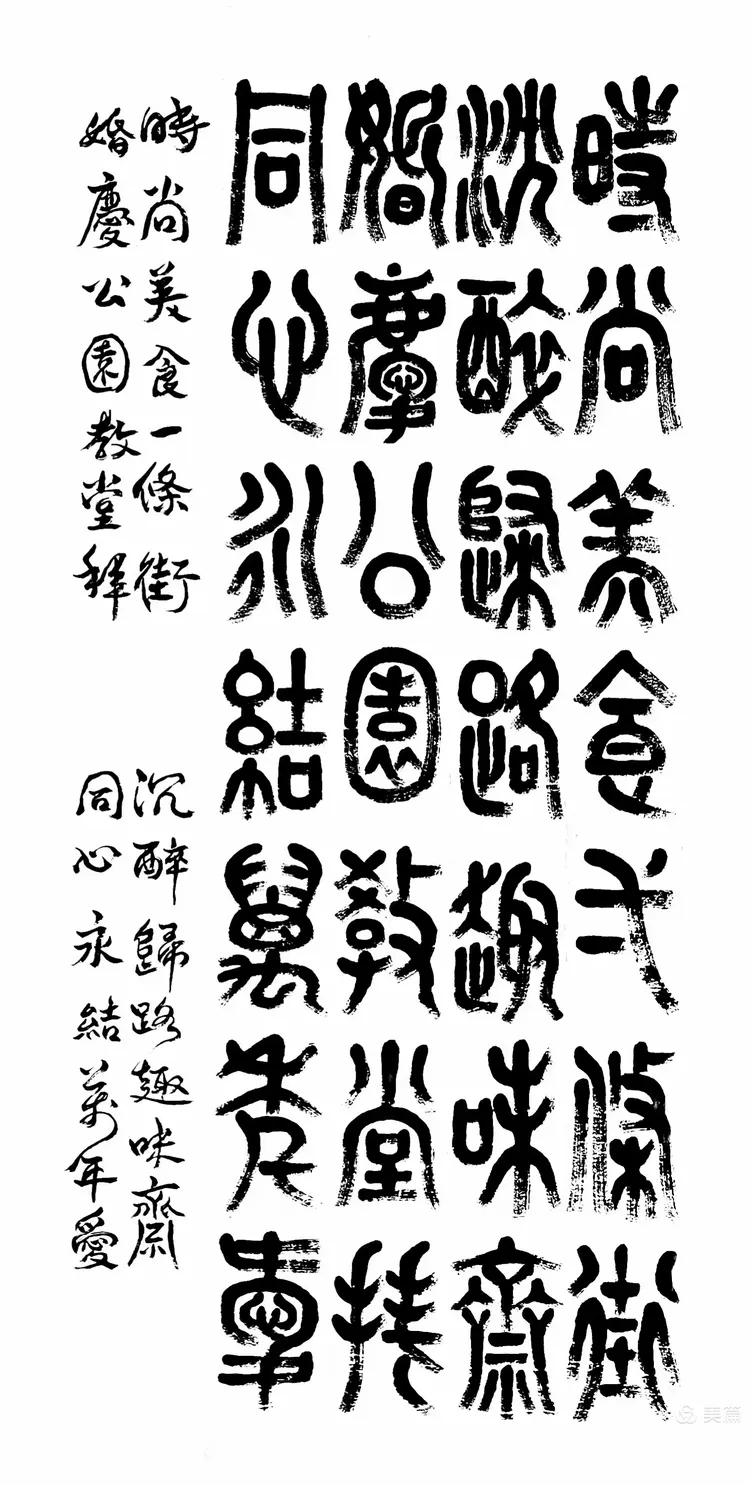 時尚美食弌條街
沈醉歸路趣味齋
婚慶公園教堂
同心永結萬年愛
時尚美食一條街
婚慶公園教堂
沉醉歸路趣味齋
同心永結萬年愛
美篇